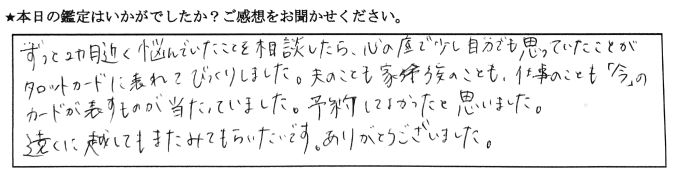 ★本日の鑑定はいかがでしたか？ご感想をお聞かせください。
ずっと2カ月近く悩んでいたことを相談したら、心の底で少し自分でも思っていたことが
タロットカードに表れてびっくりしました。夫のことも家族のことも、仕事のことも「今」の
カードが表すものが当たっていました。予約してよかったと思いました。
遠くに越してもまたみてもらいたいです。ありがとうございました。